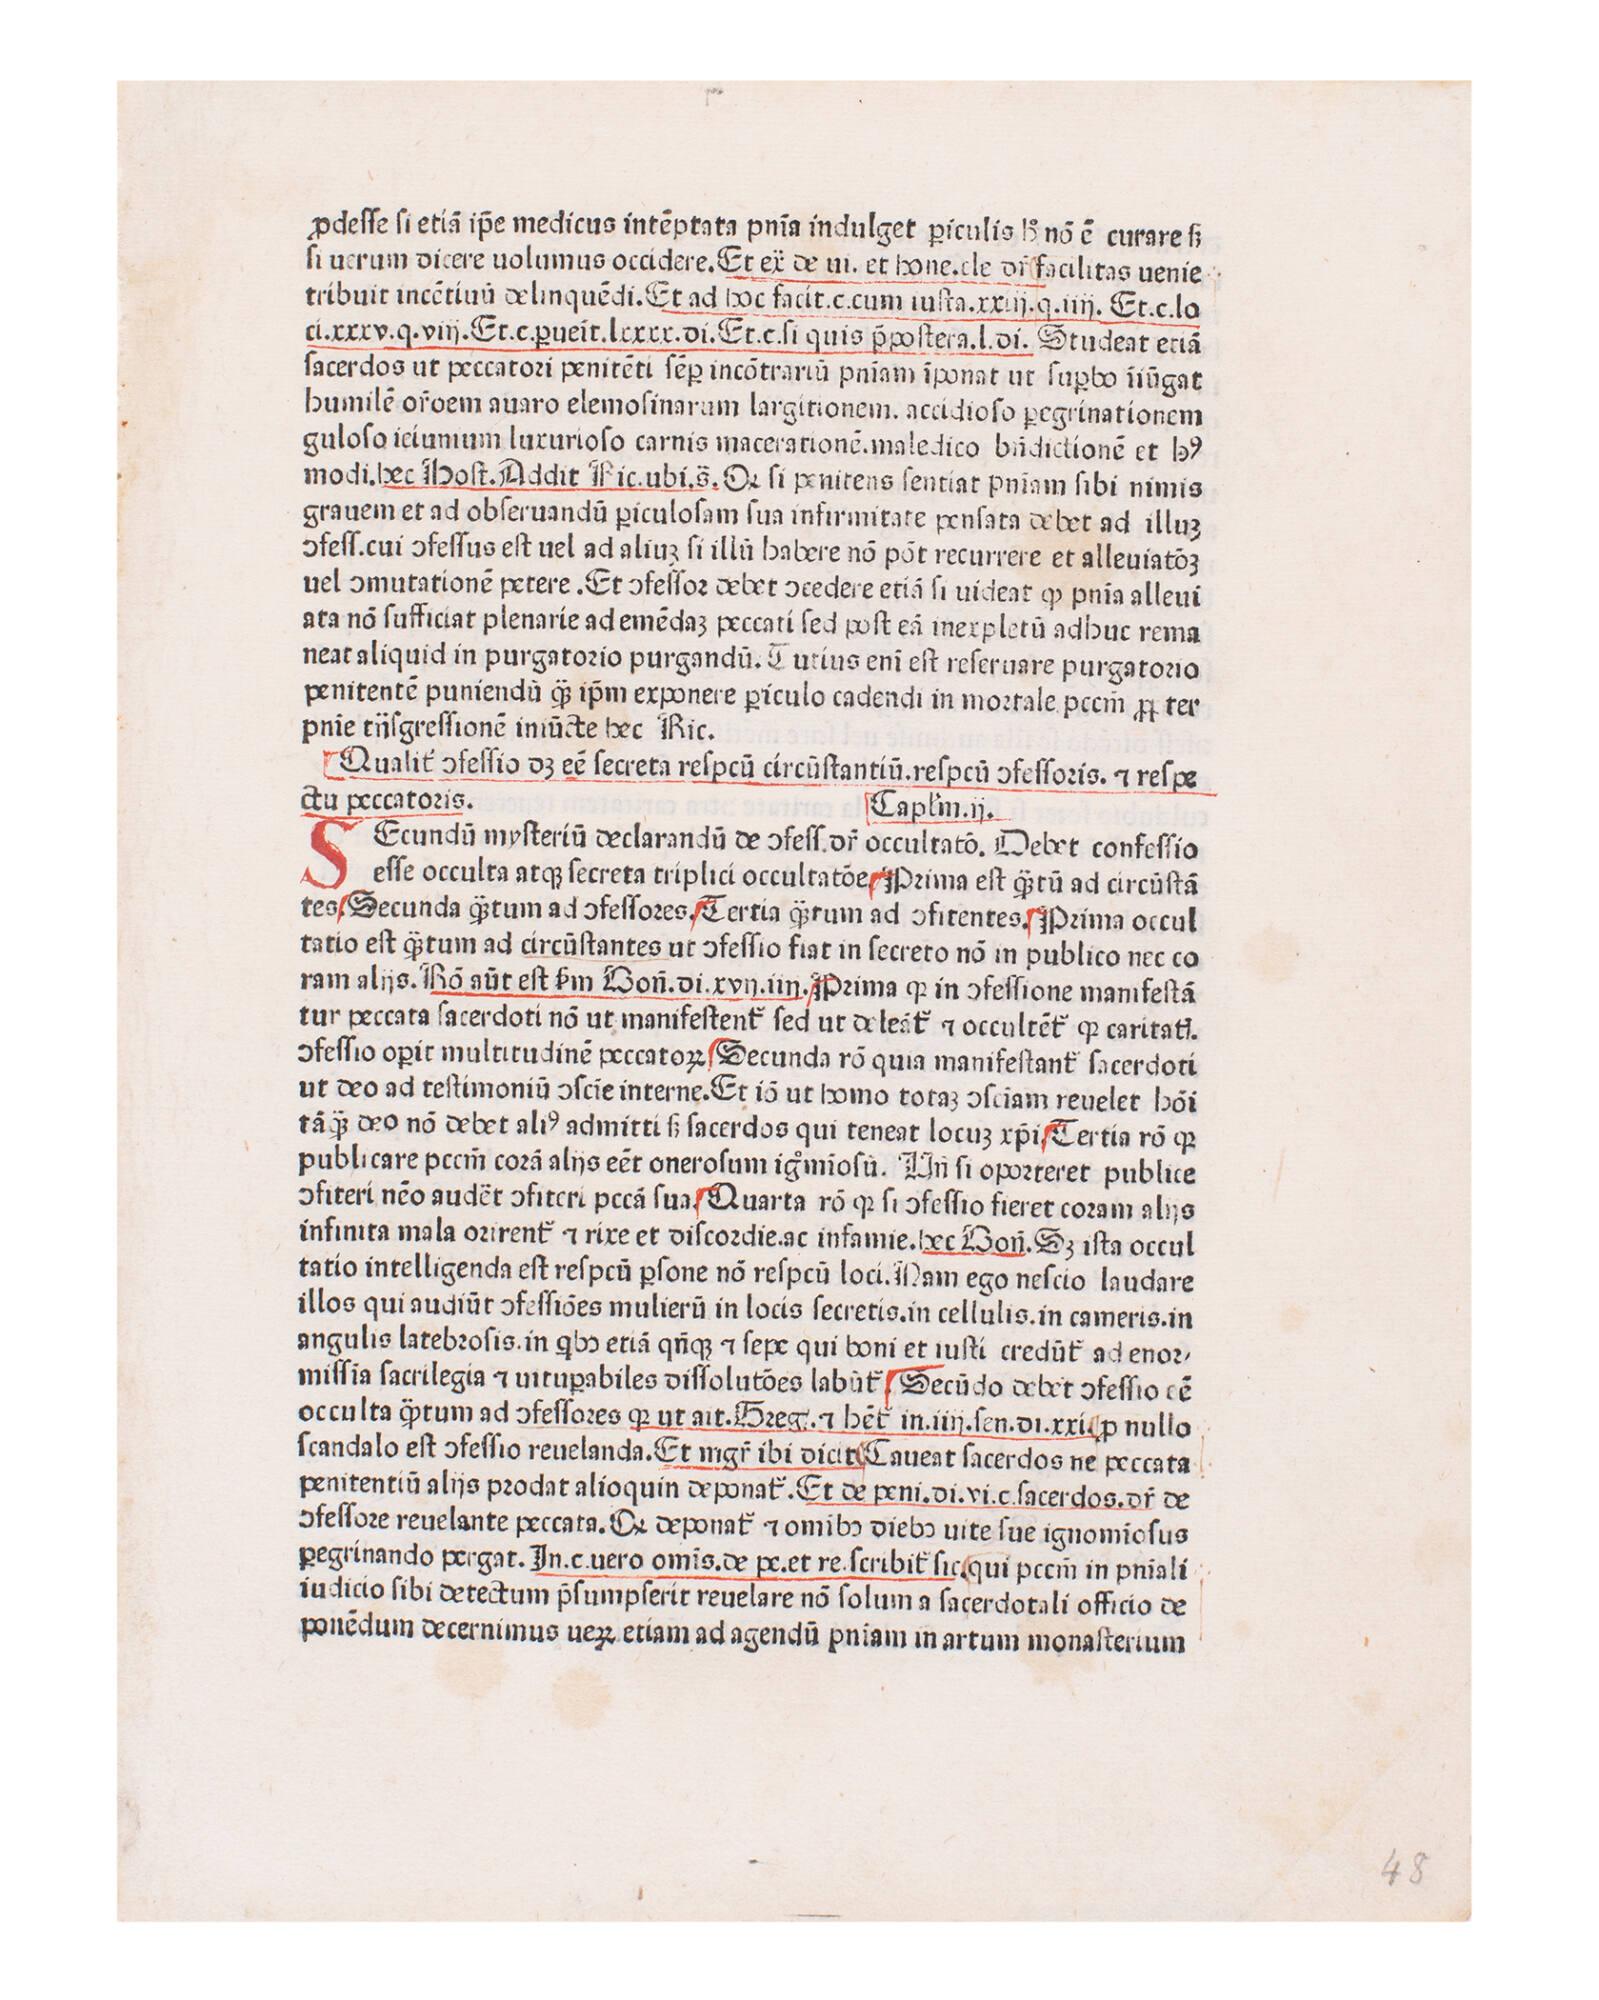 ꝓdesse si etiā ip̄e medicus intēptata pn̄ia indulget ꝑiculis h̊ nō ē curare s̄
si uerum dicere uolumus occidere. Et ex̄ de ui. et hone. cle dr̄ facilitas uenie
tribuit incētiuū delinquēdi. Et ad hoc facit. c. cum iusta. xxiij. q. iiij. Et. c. lo
ci. xxxv. q. viij. Et. c. ꝑueit. lxxxx. di. Et. c. si quis p̄postera. l. di. Studeat etiā
sacerdos ut peccatori penitēti sēꝑ incōtrariū pniam īponat ut suꝑbo īiūgat
humilē or̄oem auaro elemosinarum largitionem. accidioso ꝑegrinationem
guloso ieiunium luxurioso carnis macerationē. maledico bn̄dictionē et hꝰ
modi. hec Host. Addit Ric. ubi. s̄. Ꝙ si penitens sentiat pniam sibi nimis
grauem et ad obseruandū ꝑiculosam sua infirmitate pensata debet ad illuꝫ
ꝯfess. cui ꝯfessus est uel ad aliuꝫ si illū habere nō pōt recurrere et alleuiatōꝫ
uel ꝯmutationē petere. Et ꝯfessor debet ꝯcedere etiā si uideat ꝙ pn̄ia alleui
ata nō sufficiat plenarie ad emēdaꝫ peccati sed post eā inexpletū adhuc rema
neat aliquid in purgatorio purgandū. Tutius enī est reseruare purgatorio
penitentē puniendū qꝫ̄ ip̄m exponere ꝑiculo cadendi in mortale pccm̄ ꝓpter
pnīe tn̄sgressionē iniūcte hec Ric.
Qualit̄ ꝯfessio dꝫ eē secreta respcū circūstantiū. respcū ꝯfessoris. ⁊ respe
ctu peccatoris. Caplm̄. ij.
SEcundū mysteriū declarandū de ꝯfess. dr̄ occultatō. Debet confessio
esse occulta atqꝫ secreta triplici occultatōe. Prima est qꝫ̄tū ad circūstā
tes. Secunda qꝫ̄tum ad ꝯfessores. Tertia qꝫ̄tum ad ꝯfitentes. Prima occul
tatio est qꝫ̄tum ad circūstantes ut ꝯfessio fiat in secreto nō in publico nec co
ram alijs. Rō aūt est km̄ Bon̄. di. xvij. iiij. Prima qꝛ in ꝯfessione manifestā
tur peccata sacerdoti nō ut manifestent̄ sed ut deleāt̄ ⁊ occultēt̄ qꝛ caritati.
ꝯfessio oꝑit multitudinē peccatoꝝ Secunda rō quia manifestant̄ sacerdoti
ut deo ad testimoniū ꝯscīe interne. Et iō ut homo totaꝫ ꝯsciam reuelet hōi
tāqꝫ̄ deo nō debet aliꝰ admitti s̄ sacerdos qui teneat locuꝫ xp̄i Tertia rō qꝛ
publicare pccm̄ corā alijs eēt onerosum ig̊miosū. Un̄ si oporteret publice
ꝯfiteri nēo audēt ꝯfiteri pccā sua. Quarta rō qꝛ si ꝯfessio fieret coram alijs
infinita mala orirent̄ ⁊ rixe et discordie. ac infamie. hec Bon̄. Sꝫ ista occul
tatio intelligenda est respcū ꝑsone nō respcū loci. Nam ego nescio laudare
illos qui audiūt ꝯfessiōes mulierū in locis secretis. in cellulis. in cameris. in
angulis latebrosis. in qͥbꝯ etiā qn̄qꝫ ⁊ sepe qui boni et iusti credūt̄ ad enor⸗
missīa sacrilegia ⁊ uituꝑabiles dissolutōes labūt̄. Secūdo debet ꝯfessio eē
occulta qꝫ̄tum ad ꝯfessores qꝛ ut ait. Greg. ⁊ hēt̄ in. iiij. sen. di. xxi. ꝓ nullo
scandalo est ꝯfessio reuelanda. Et mgr̄ ibi dicit Caueat sacerdos ne peccata
penitentiū alijs prodat alioquin deponat̄. Et de peni. di. vi. c. sacerdos. dr̄ de
ꝯfessore reuelante peccata. Ꝙ deponat̄ ⁊ omibꝯ diebꝯ uite sue ignomīosus
ꝑegrinando pergat. In. c. uero omīs. de pe. et re. scribit̄ sic. qui pccm̄ in pn̄iali
iudicio sibi detectum p̄sumpserit reuelare nō solum a sacerdotali officio de
ponēdum decernimus ueꝝ etiam ad agendū pniam in artum monasterium
48